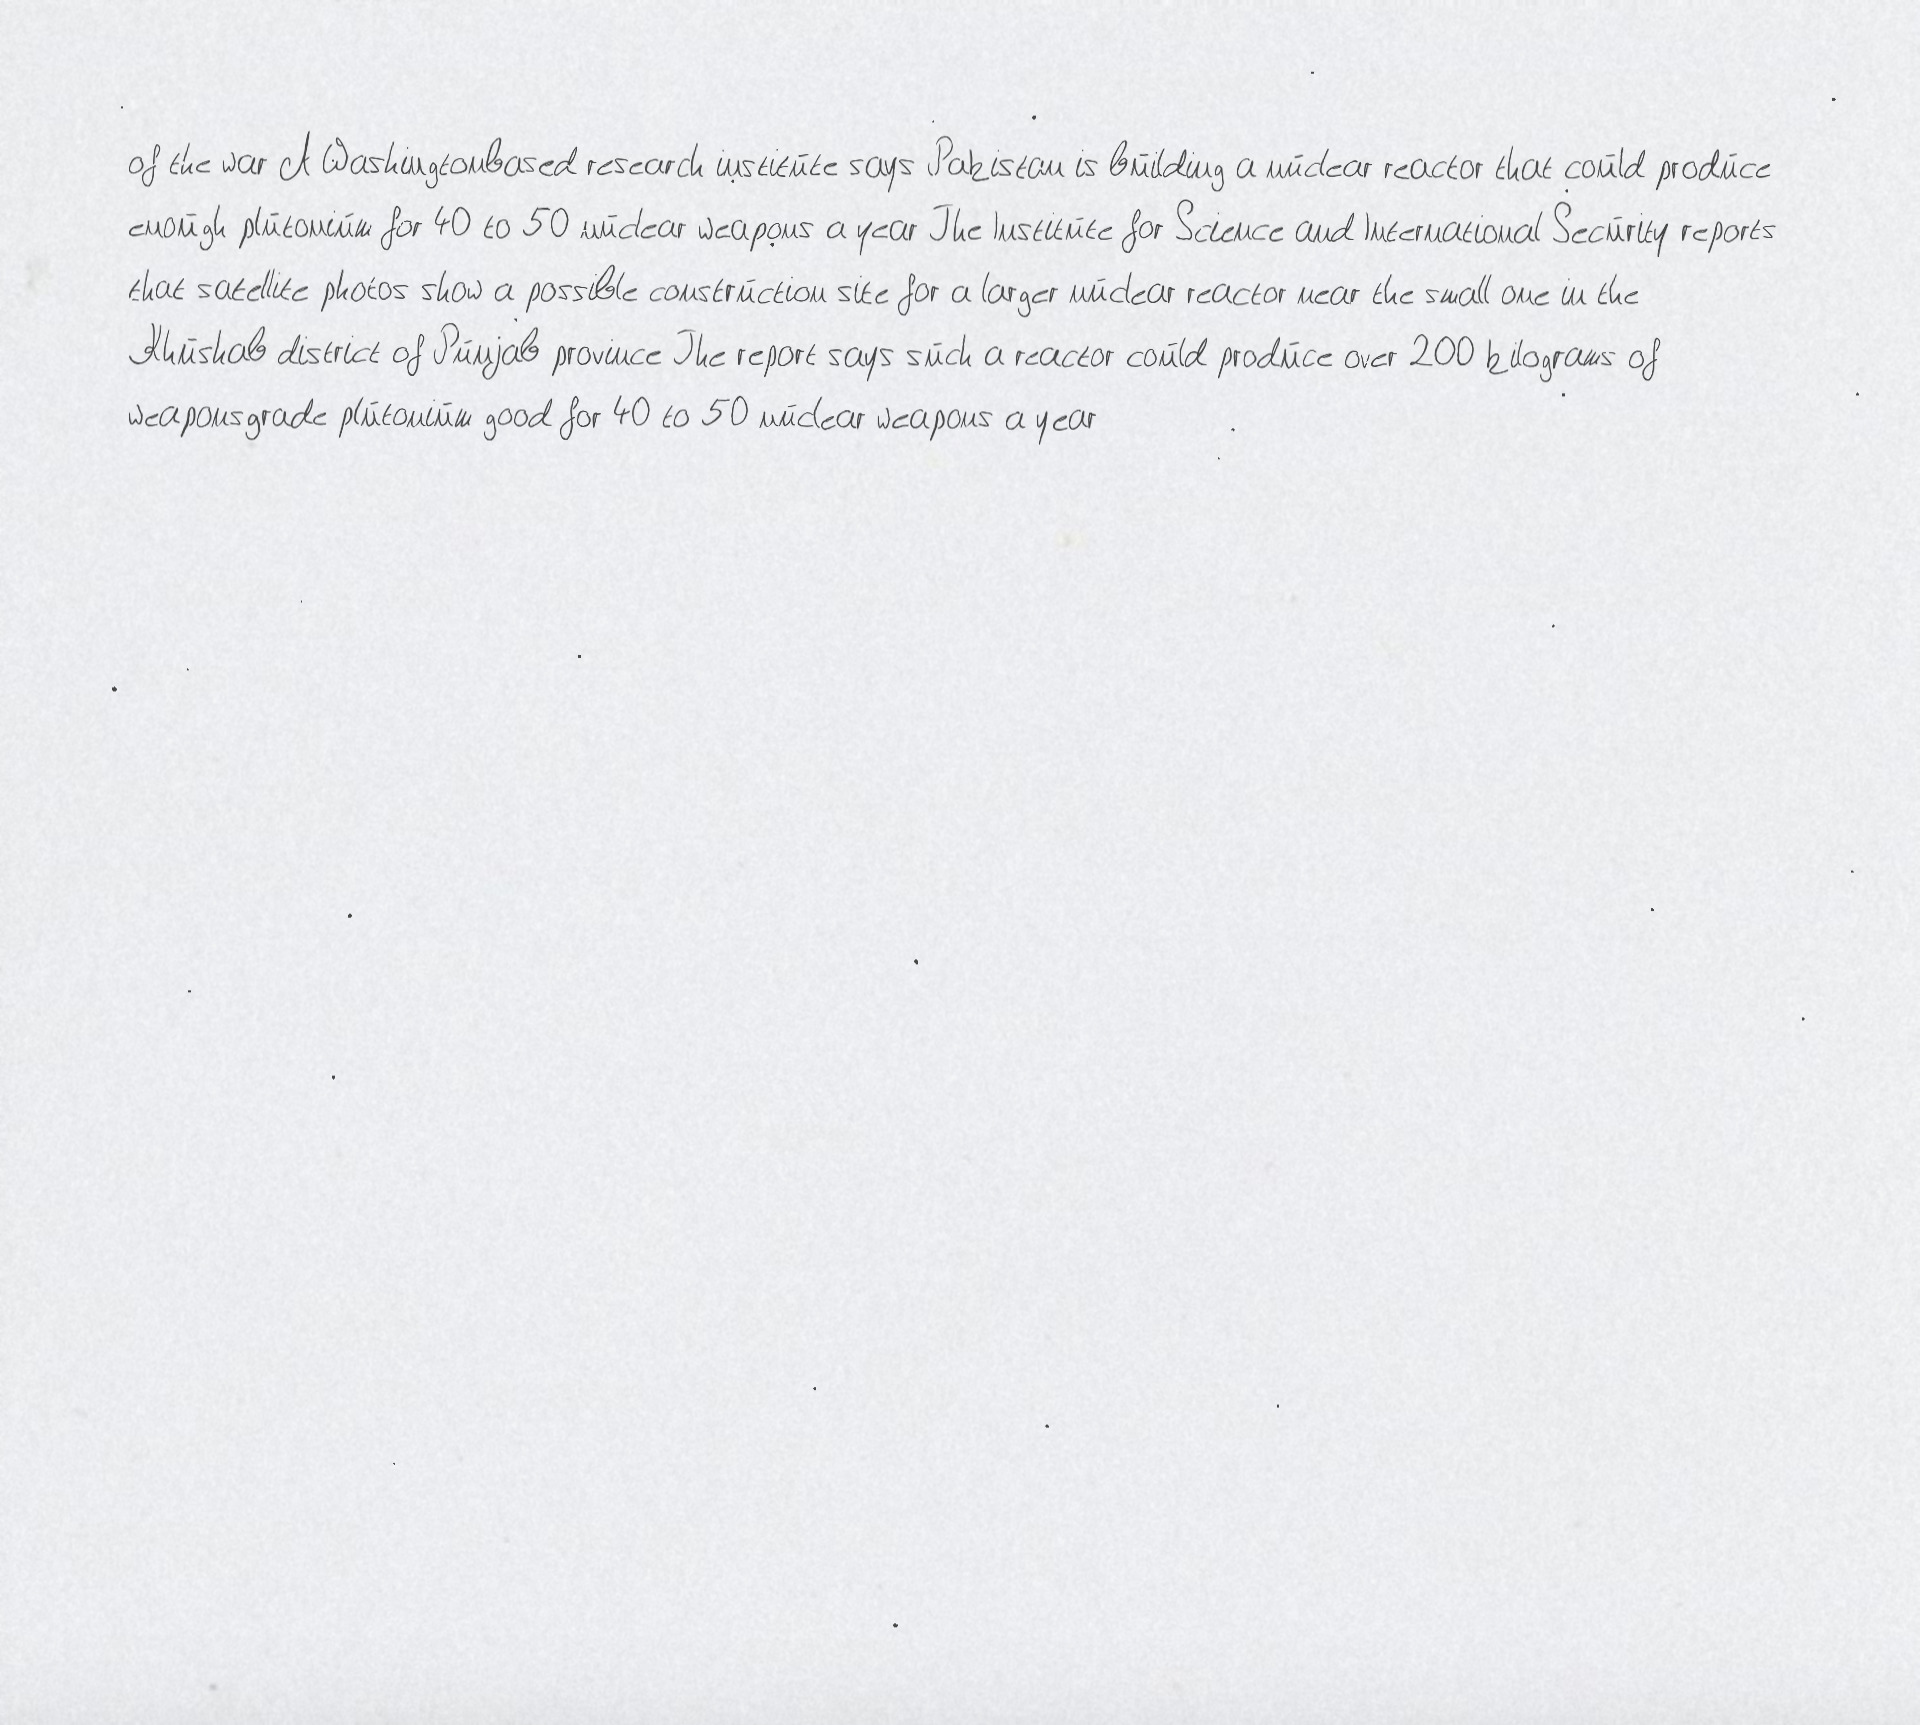 of the war A Washingtonbased research institute says Pakistan is building a nuclear reactor that could produce
enough plutonium for 40 to 50 nuclear weapons a year The Institute for Science and International Security reports
that satellite photos show a possible construction site for a larger nuclear reactor near the small one in the
Khushab district of Punjab province The report says such a reactor could produce over 200 kilograms of
weaponsgrade plutonium good for 40 to 50 nuclear weapons a year